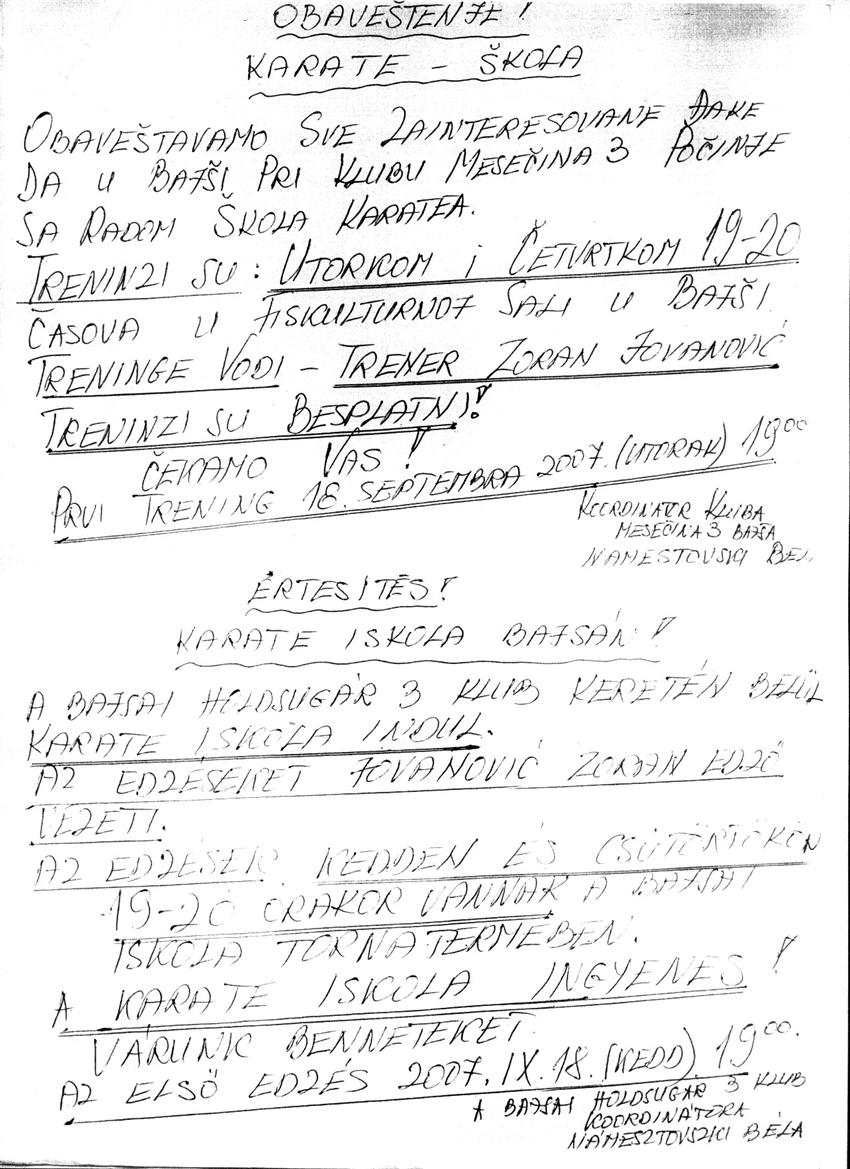 OBAVEŠTENJE!
KARATE – ŠKOLA
OBAVEŠTAVAMO SVE ZAINTERESOVANE ĐAKE
DA U BAJŠI PRI KLUBU MESEČINA 3 POČINJE
SA RADOM ŠKOLA KARATEA.
TRENINZI SU: UTORKOM i ČETVRTKOM 19-20
ČASOVA U FISKULTURNOJ SALI U BAJŠI.
TRENINGE VODI – TRENER ZORAN JOVANOVIĆ
TRENINZI SU BESPLATNI!
ČEKAMO VAS!
PRVI TRENING 18. SEPTEMBRA 2007. (UTORAK) 19⁰⁰
KOORDINATOR KLUBA
MESEČINA 3 BAJŠA
NAMESTOVSKI BEL
ÉRTESITÉS!
KARATE ISKOLA BAJSÁN!
A BAJSAI HOLDSUGÁR 3 KLUB KERETÉN BELÜL
KARATE ISKOLA INDUL.
AZ EDZÉSEKET JOVANOVIĆ ZORAN EDZŐ
VEZETI.
AZ EDZÉSEK KEDDEN ÉS CSÜTÖRTÖKÖN
19-20 ORAKOR VANNAK A BAJSAI
ISKOLA TORNATERMÉBEN.
A KARATE ISKOLA INGYENES!
VÁRUNK BENNETEKET.
AZ ELSŐ EDZÉS 2007. IX. 18. (KEDD). 19⁰⁰.
A BAJSAI HOLDSUGÁR 3 KLUB
KOORDINÁTORA
NÁMESZTOVSZKI BÉLA